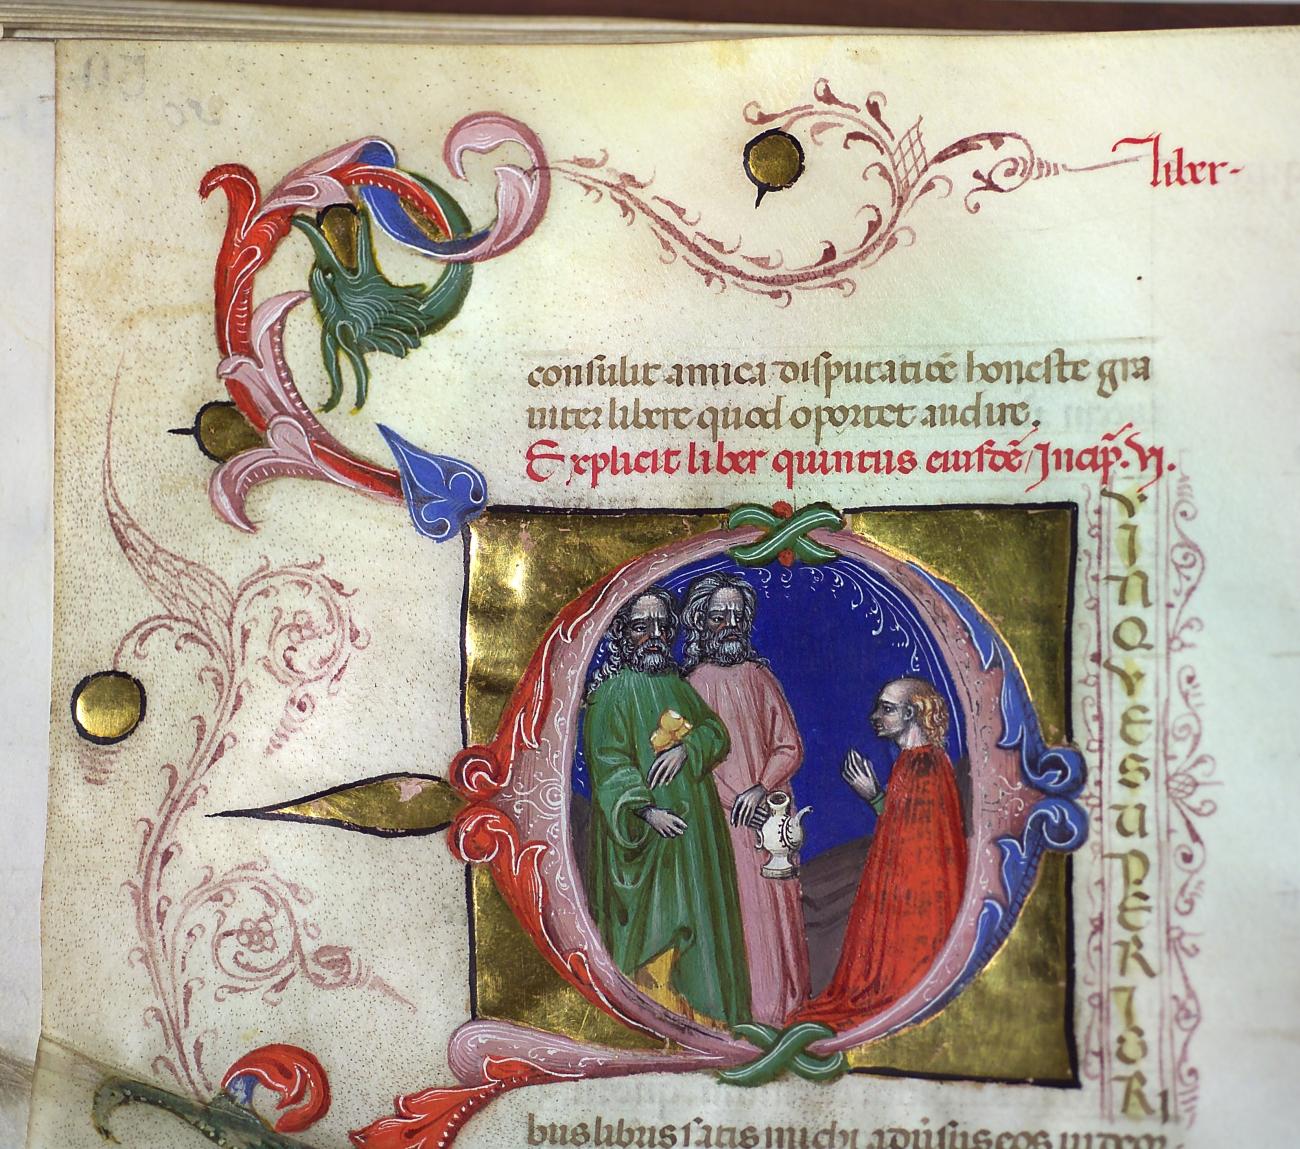 liber-
consulit amica disputatiōē honeste gra
uiter libere quod oportet audire.
Explicit liber quintus eiusdē/Incip̄. vj.
VINQVESUPERIOR
bus libris satis michi aduersus eos uideor